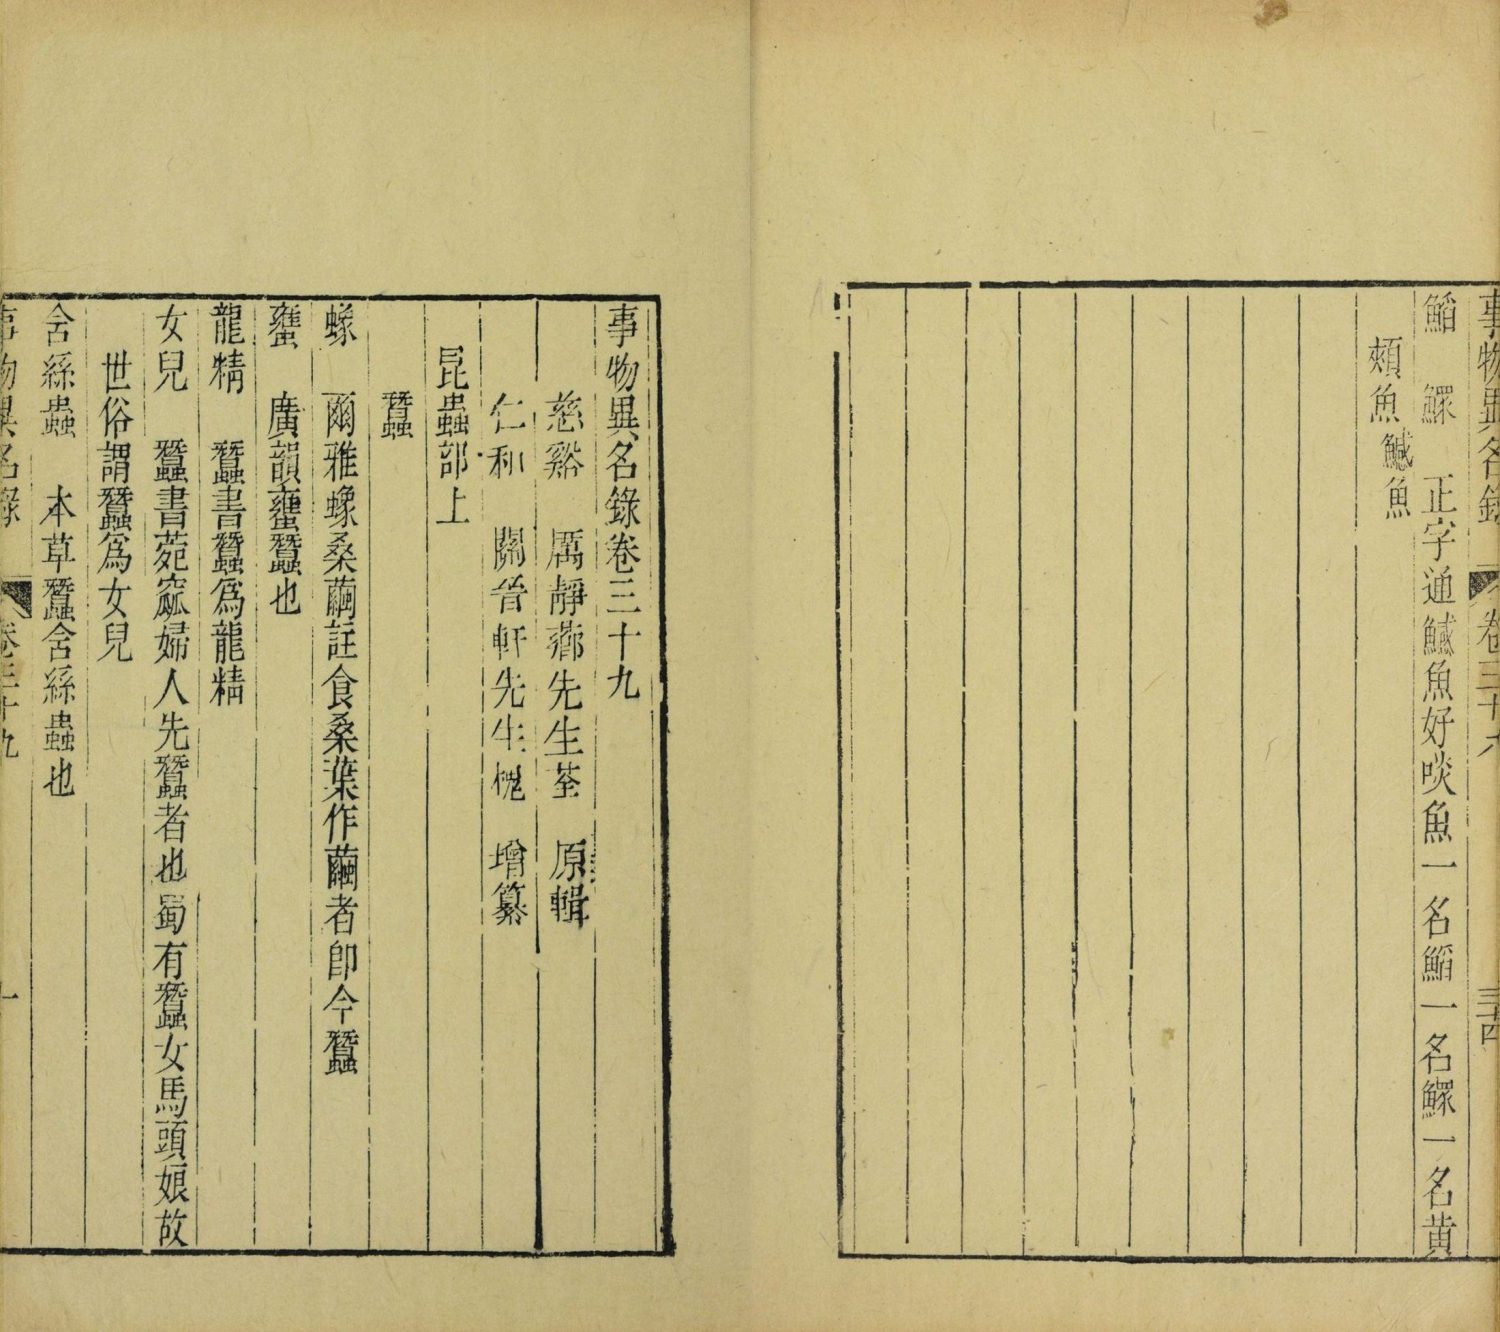 事物異名錄 卷三十八 三十四
鮨 鰥 正字通鰔魚好啖魚一名鮨一名鰥一名黃
頰魚鰔魚
事物異名錄卷三十九
慈谿 厲靜薌先生荃 原輯
仁和 關晉軒先生槐 增纂
昆蟲部上
蠶
蟓 爾雅蟓桑繭註食桑葉作繭者即今蠶
䗸 廣韻䗸蠶也
龍精 蠶書蠶爲龍精
女兒 蠶書菀窳婦人先蠶者也蜀有蠶女馬頭娘故
世俗謂蠶爲女兒
含絲蟲 本草蠶含絲蟲也
事物異名錄 卷三十九 一